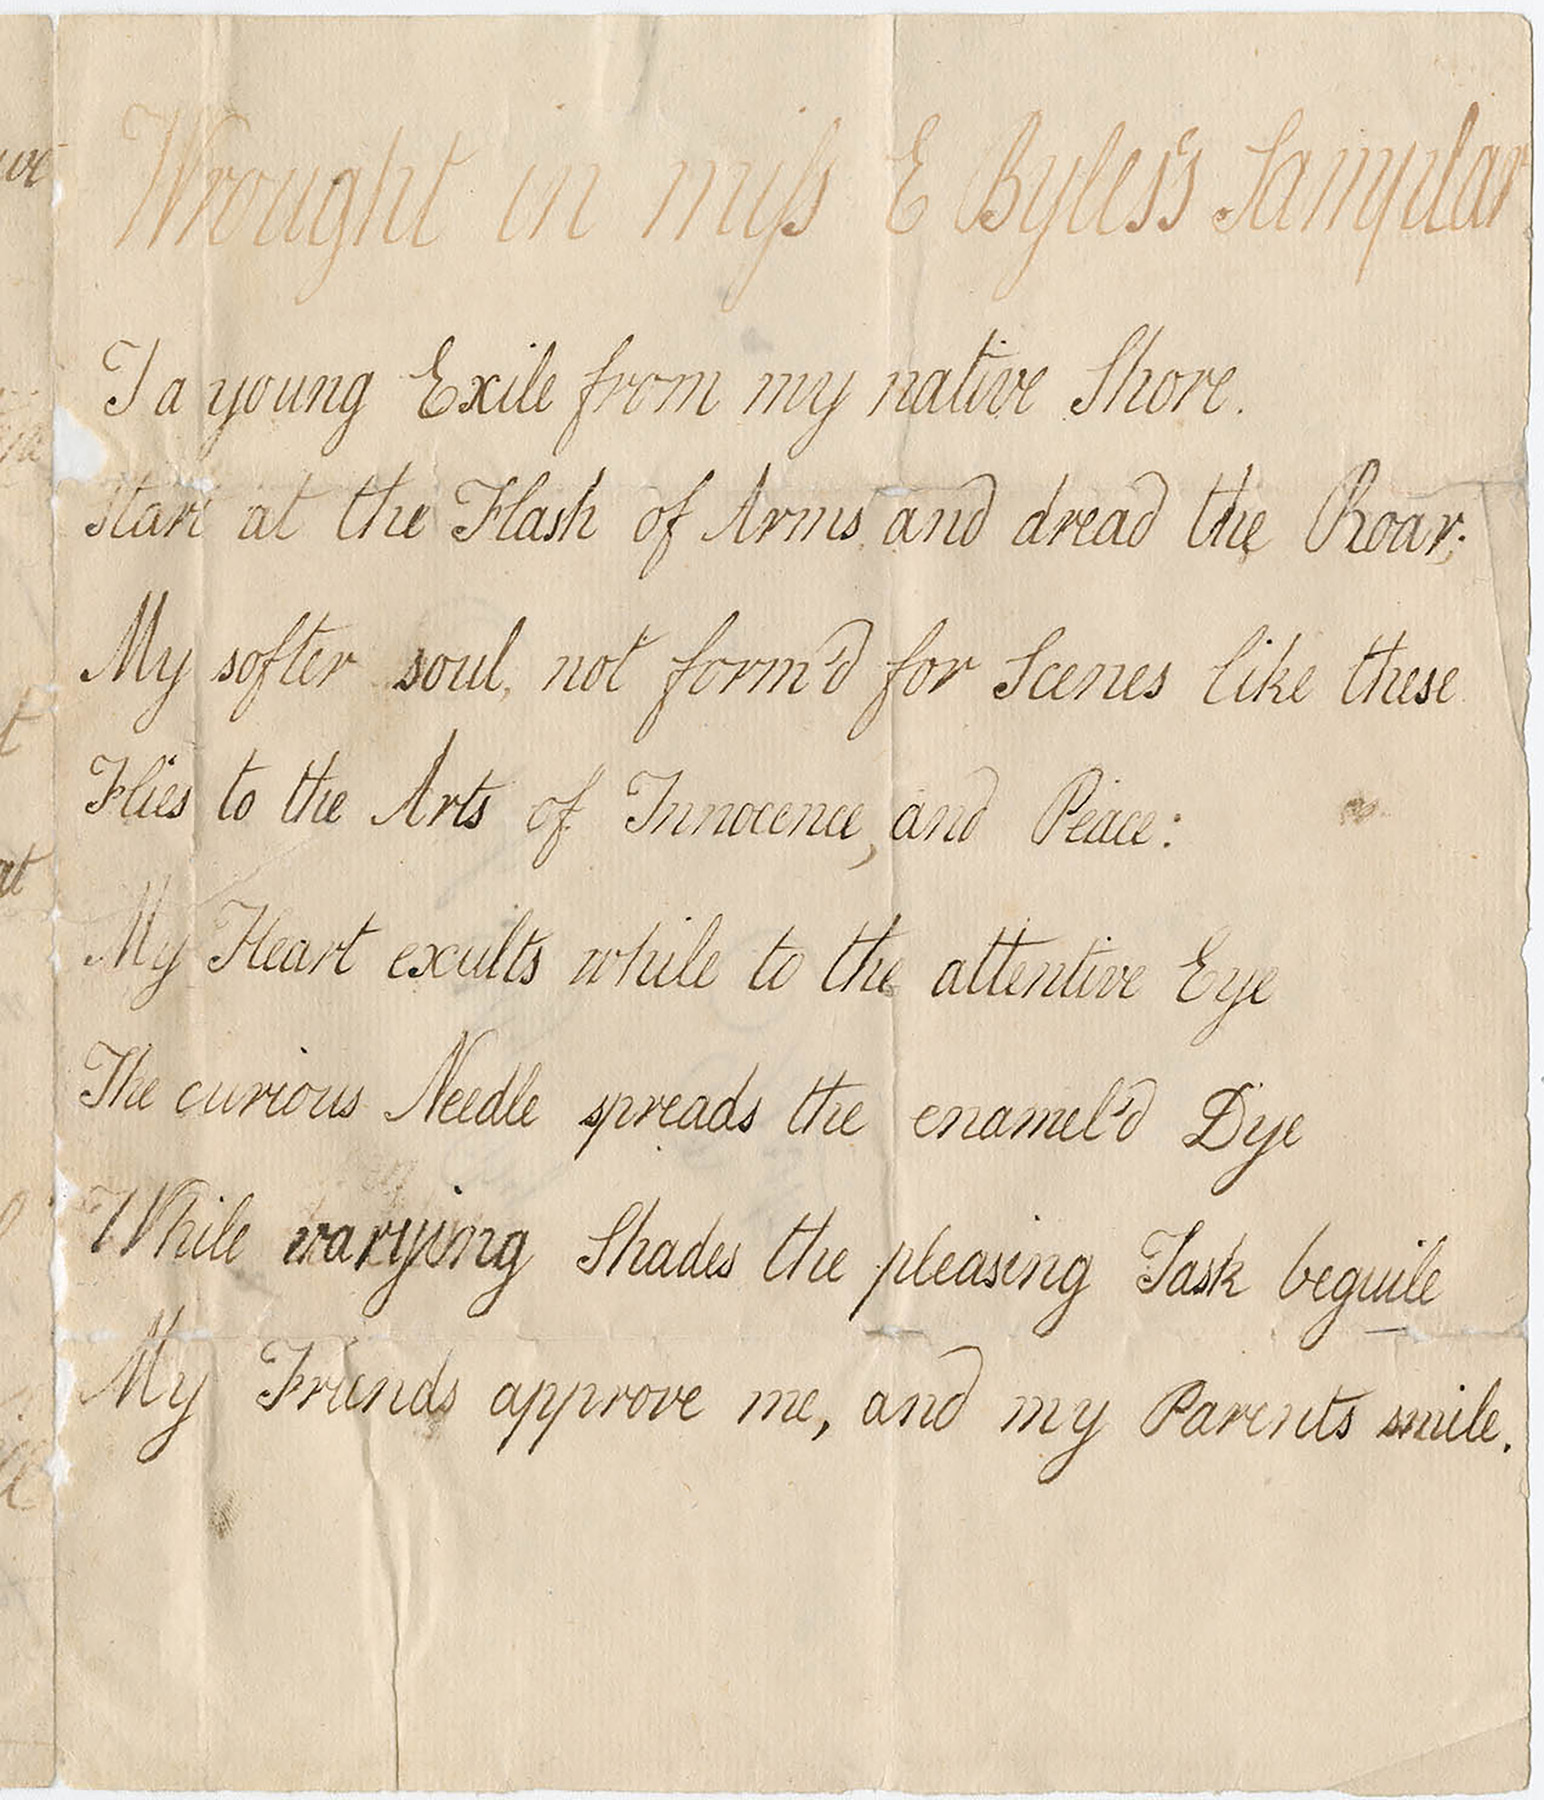 Wrought in miss E Byles's Samplar
I a young Exile from my native Shore.
Start at the Flash of Arms, and dread the Roar;
My softer soul, not form'd for Scenes like these
Flies to the Arts of Innocence, and Peace:
My Heart exults while to the attentive Eye
The curious Needle spreads the enamel'd Dye
While varying Shades the pleasing Task beguile
My Friends approve me, and my Parents smile.